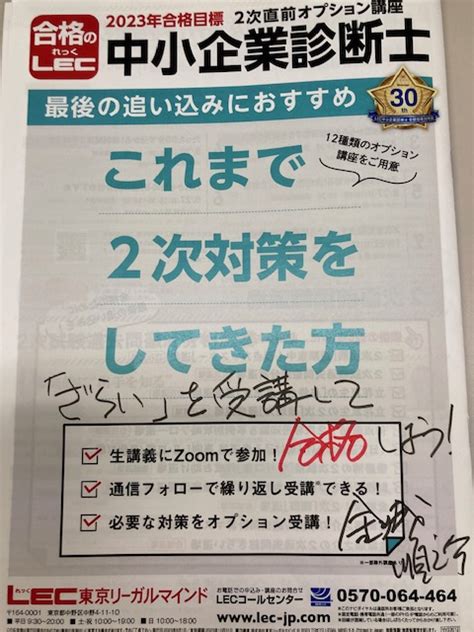 合格の
れっく
LEC
2023年合格目標 2次直前オプション講座
中小企業診断士
最後の追い込みにおすすめ
30
th
12種類のオプション
講座をご用意
これまで
2次対策を
してきた方
「ざらい」を受講して
合格しよう!
生講義にZoomで参加!
通信フォローで繰り返し受講※できる!
必要な対策をオプション受講!
れっく
LEC東京リーガルマインド
〒164-0001 東京都中野区中野4-11-10
お電話での申込み・講座のお問合せ
LECコールセンター
0570-064-464
■平日 9:30~20:00
www.lec-jp.com/